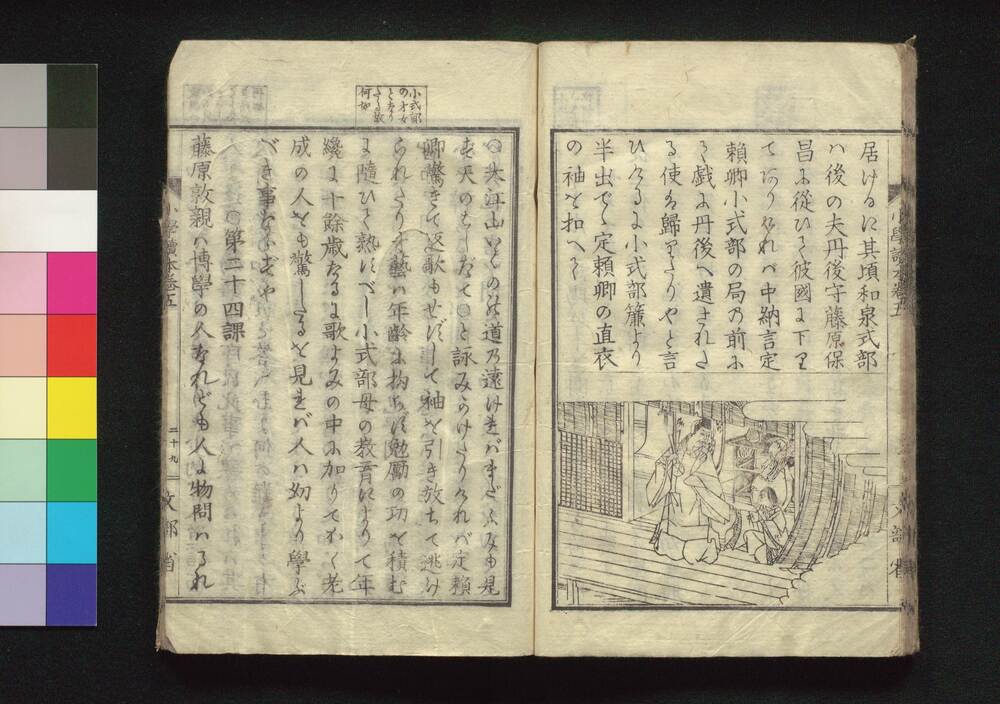 居けるに其頃和泉式部
ハ後の夫丹後守藤原保
昌に從ひて彼國に下り
てありければ中納言定
頼卿小式部の局の前に
て戯に丹後へ遣された
る使は歸りたりやと言
ひけるに小式部簾より
半出でゝ定頼卿の直衣
の袖を扣へて
小學讀本卷五
文部省
小式部
の才女
となり
たる故
何如
○大江山いくのの道の遠ければまだふみも見
ず天のはしだて○と詠みかけたりければ定頼
卿驚きて返歌もせずして袖を引き放ちて逃げ
られたり才藝ハ年齡に拘らず勉勵の功を積む
に隨ひて熟すべし小式部母の教育によりて年
纔に十餘歳なるに歌よみの中に加りて
成の人をも驚したるを見れば人ハ幼より學ぶ
べき事ならずや
第二十四課
藤原敦親ハ博學の人なれども人に物問ハるれ
小學讀本卷五
二十九
文部省